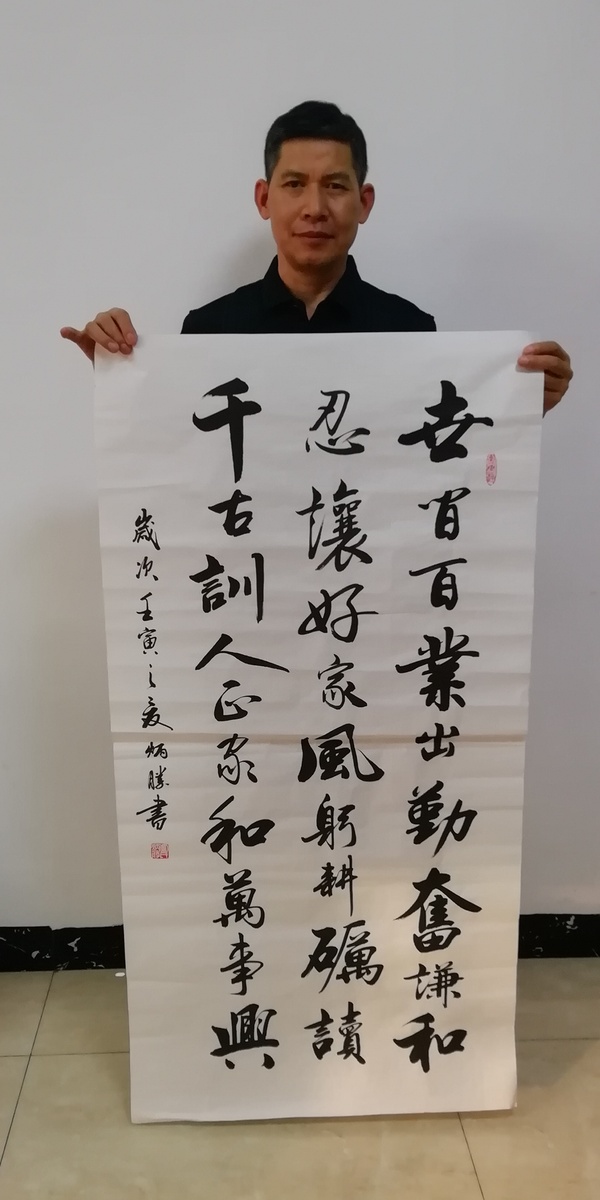 世間百業出勤奮謙和
忍讓好家風躬耕礪讀
千古訓人正家和萬事興
歲次壬寅之夏炳勝書